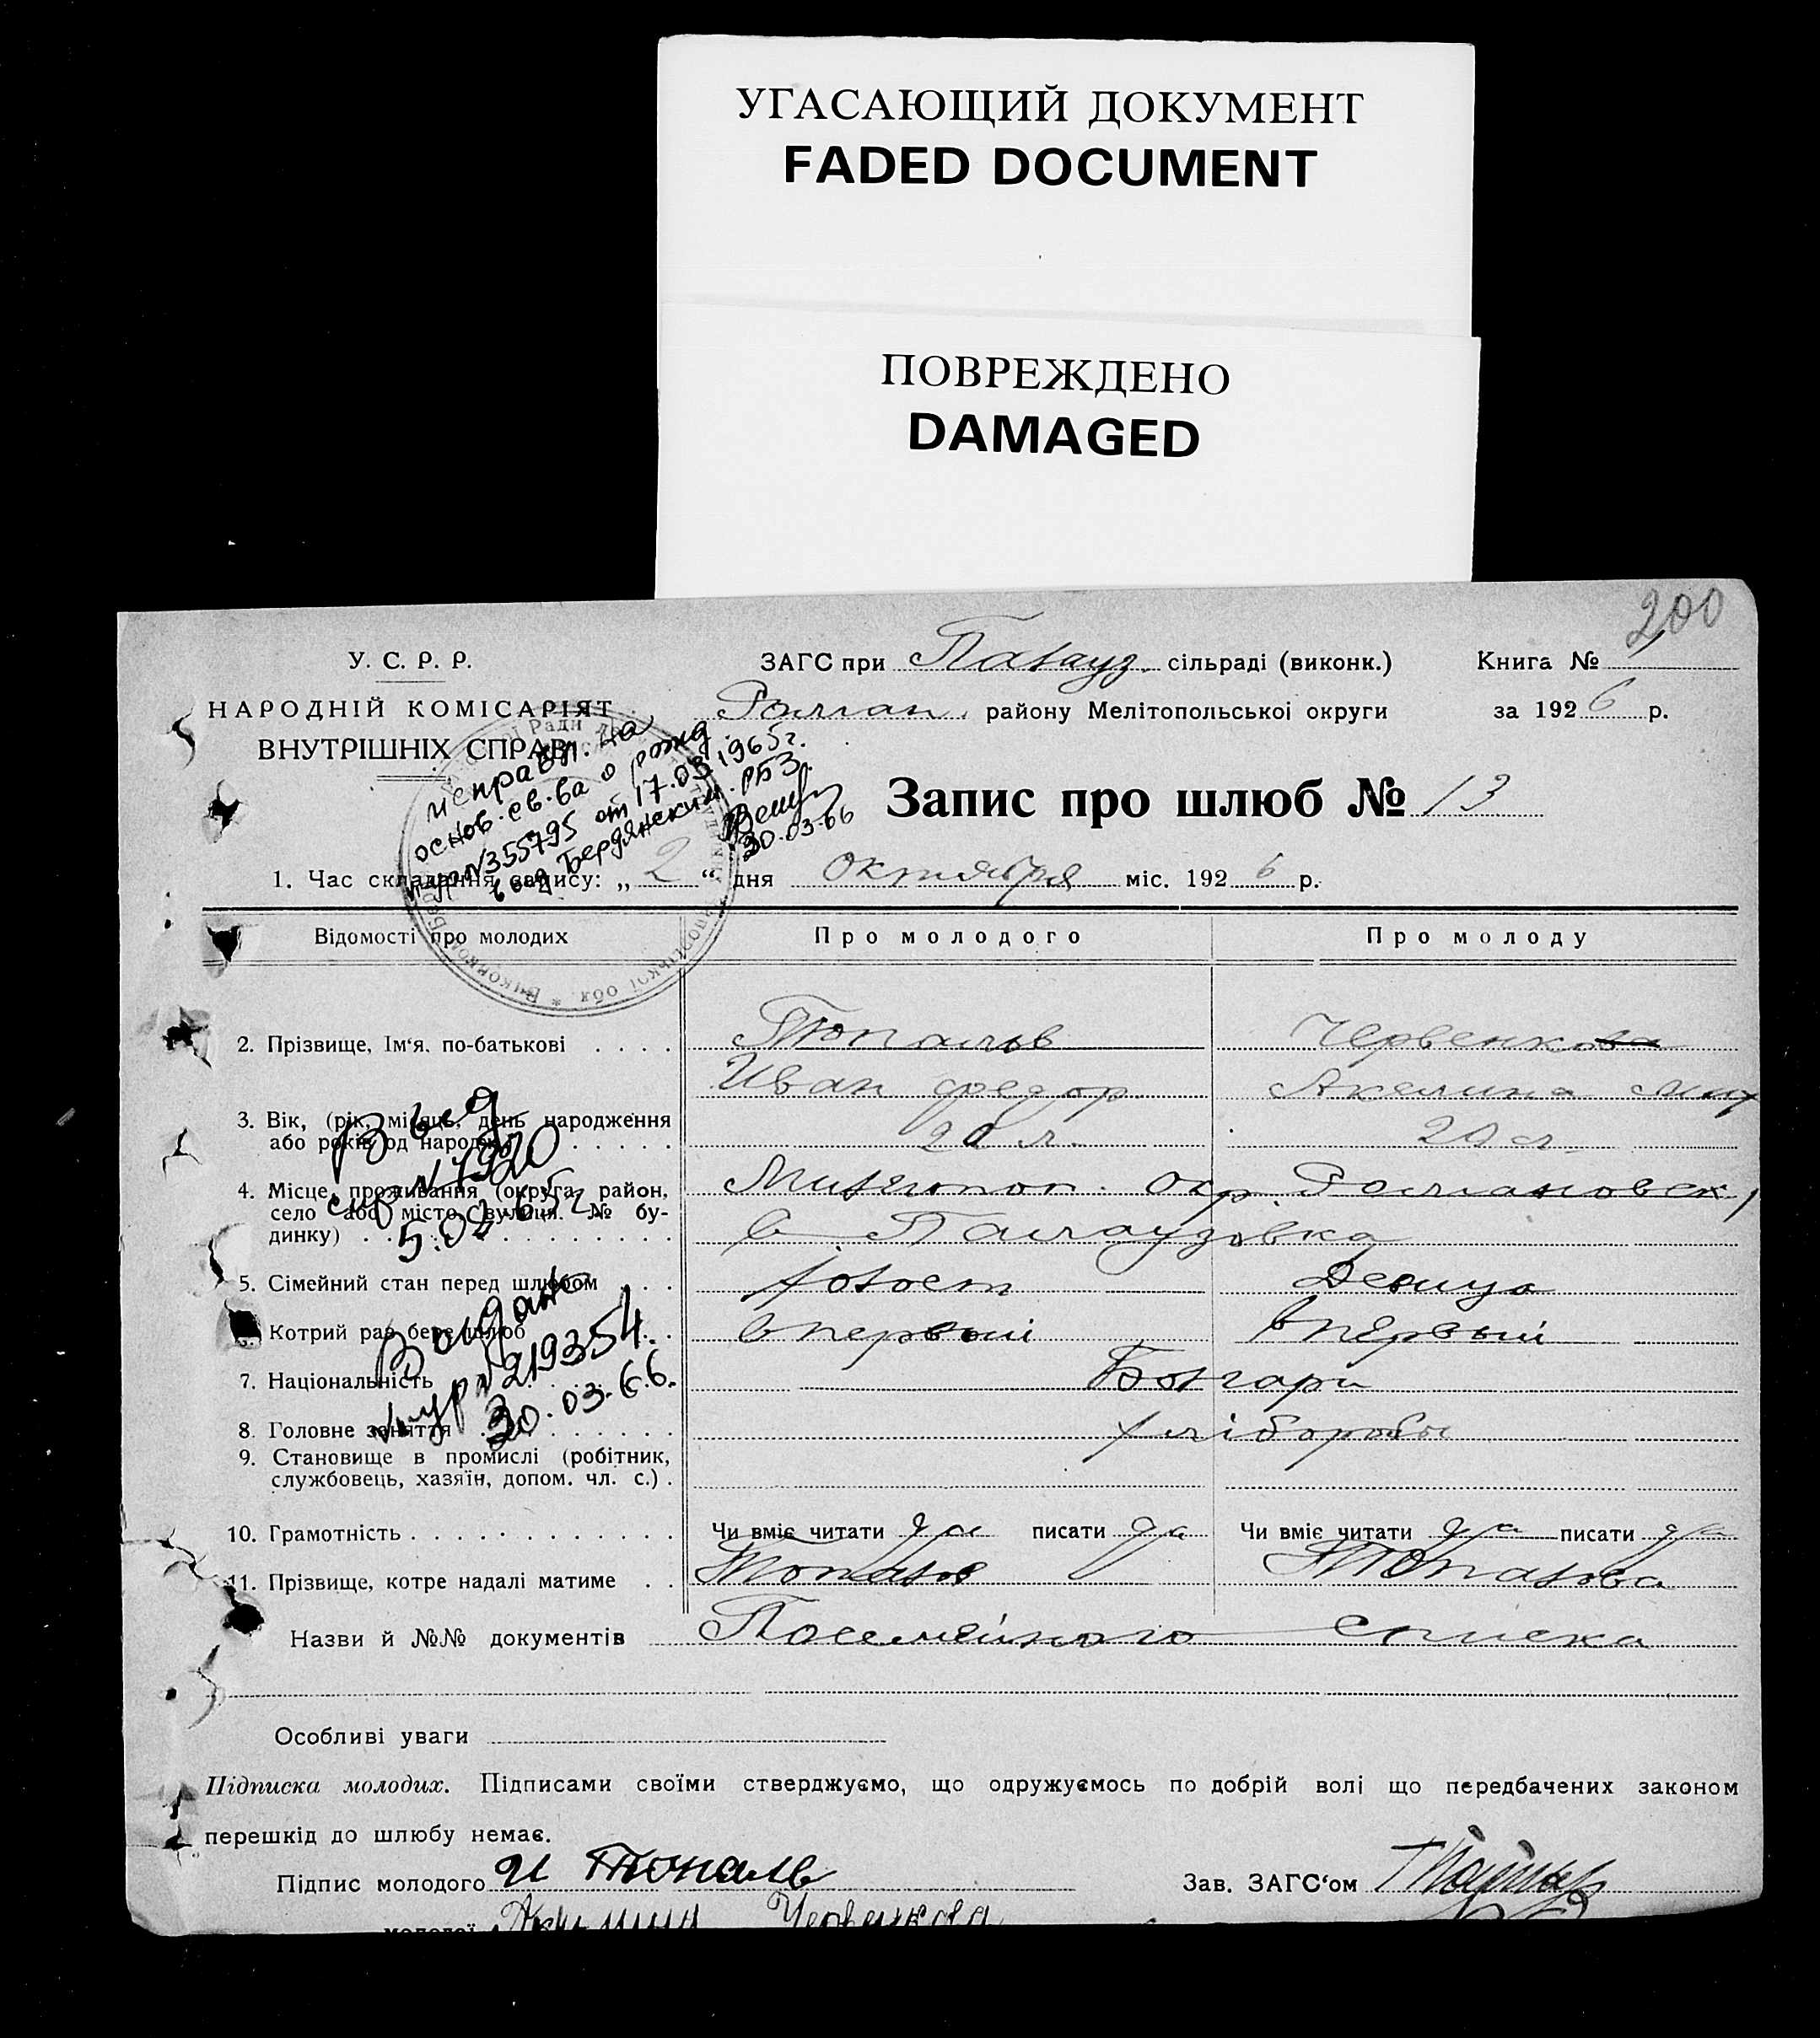 УГАСАЮЩИЙ ДОКУМЕНТ
FADED DOCUMENT
ПОВРЕЖДЕНО
DAMAGED
200
У. С. Р. Р.
НАРОДНІЙ КОМІСАРІЯТ
ВНУТРІШНІХ СПРАВ
ЗАГС при Палауз. сільраді (виконк.)
Книга № 1
Роман. району Мелітопольської округи
за 1926 р.
исправл. на
основ. св-ва о рожд.
№355795 от 17.03.1965г.
выд Бердянским РБЗ
30.03.66
Запис про шлюб № 13
1. Час складання запису: „2“ дня октября міс. 1926 р.
Відомості про молодих
Про молодого
Про молоду
2. Прізвище, Ім'я. по-батькові . . . . Топалов Червенкова
Иван федор. Акелина Мих
3. Вік, (рік, місяць, день народження
або років од народж. . . . . . 20 л. 20 л
4. Місце проживання (округа, район,
село або місто, вулиця. № будинку) . . . Милитопол. окр. Романовск,
с. Палаузовка
5. Сімейний стан перед шлюбом . . . холост Девица
Котрий раз бере шлюб . . . впервый впервый
7. Національність . . . Болгари
8. Головне заняття . . . хлібороби
9. Становище в промислі (робітник,
службовець, хазяїн, допом. чл. с.) .
10. Грамотність . . . Чи вміє читати да писати да Чи вміє читати да писати да
11. Прізвище, котре надалі матиме . . Топалов Топалова
Выд
спр №7920
5.02.65г
Видано
№219354.
30.03.66.
Назви й №№ документів Посемейного списка
Особливі уваги
Підписка молодих. Підписами своїми стверджуємо, що одружуємось по добрій волі що передбачених законом
перешкід до шлюбу немає.
Підпис молодого И Топалв
Зав. ЗАГС'ом
молодої Акилини Червенкова